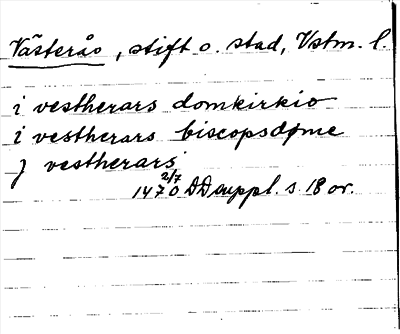 Västerås, stift o. stad, Vstm. l.
i vestherars domkirkio
i vestherars biscopsdøme
j vestherars
1470 2/7 DD suppl. s. 18 or.